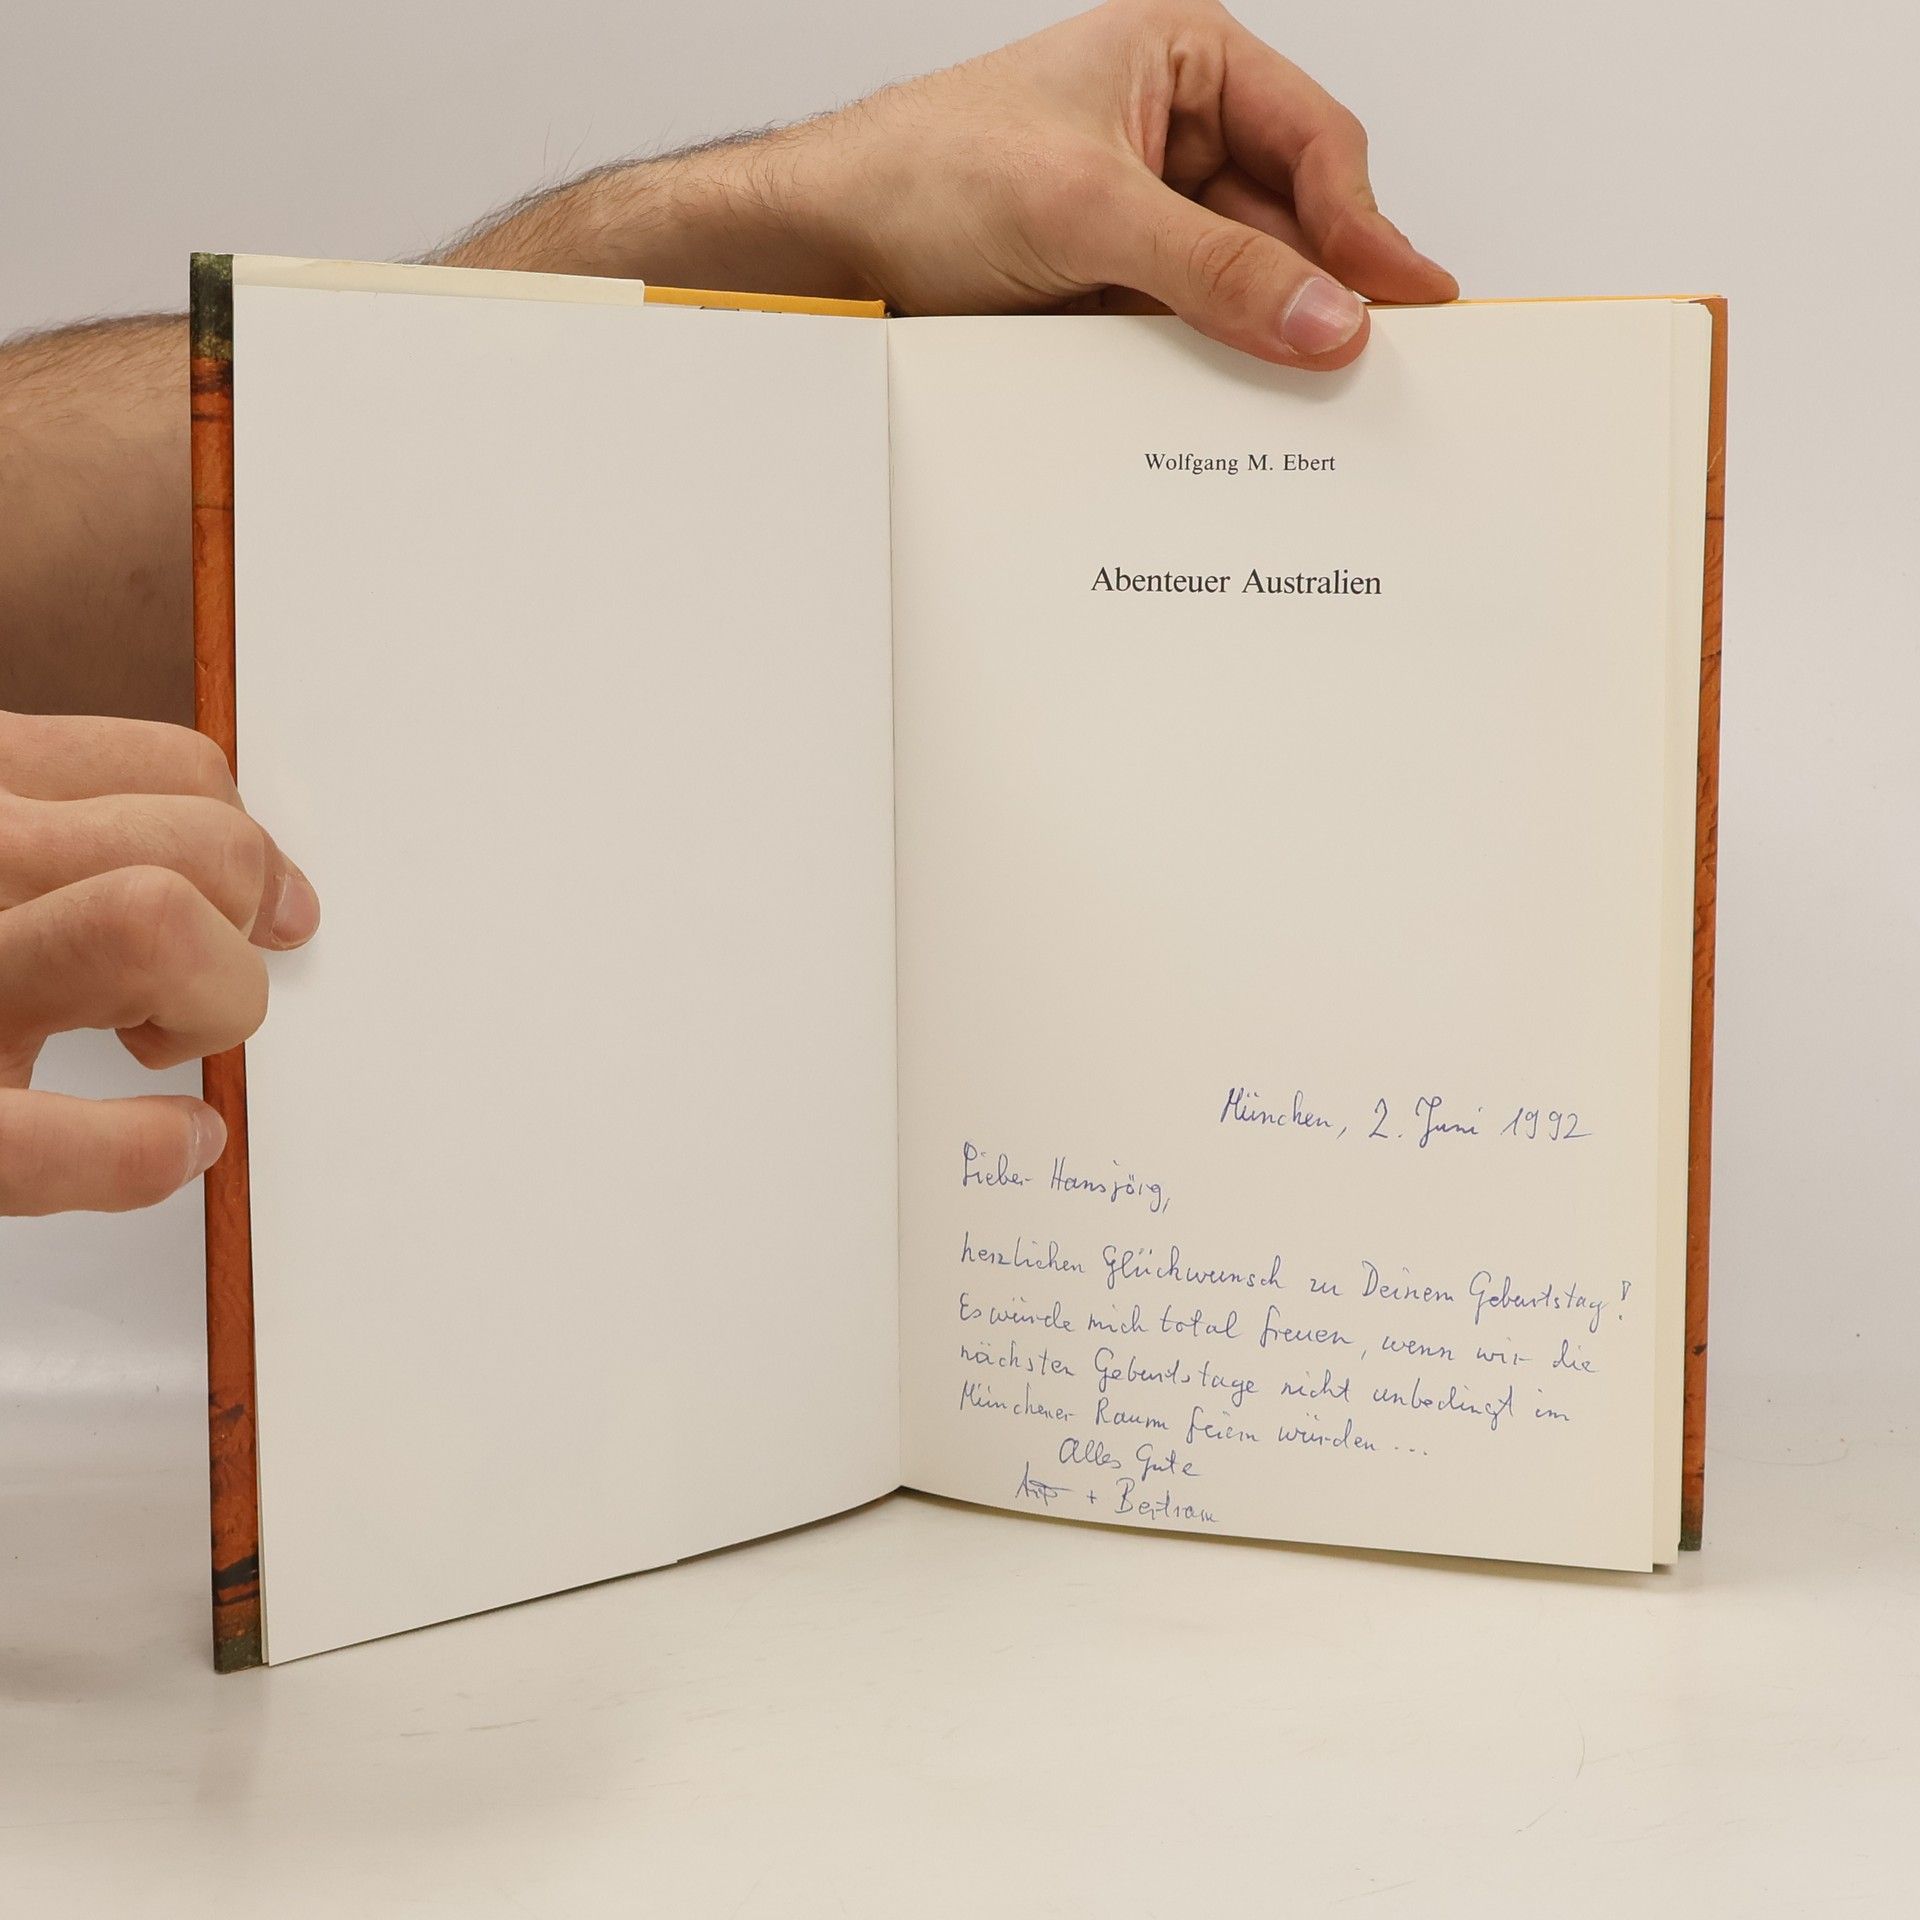 Wolfgang M. Ebert
Abenteuer Australien
München, 2. Juni 1992
Lieber Hansjörg,
herzlichen Glückwunsch zu Deinem Geburtstag!
Es würde mich total freuen, wenn wir die
nächsten Geburtstage nicht unbedingt im
Münchener Raum feiern würden ...
Alles Gute
+ Bertram